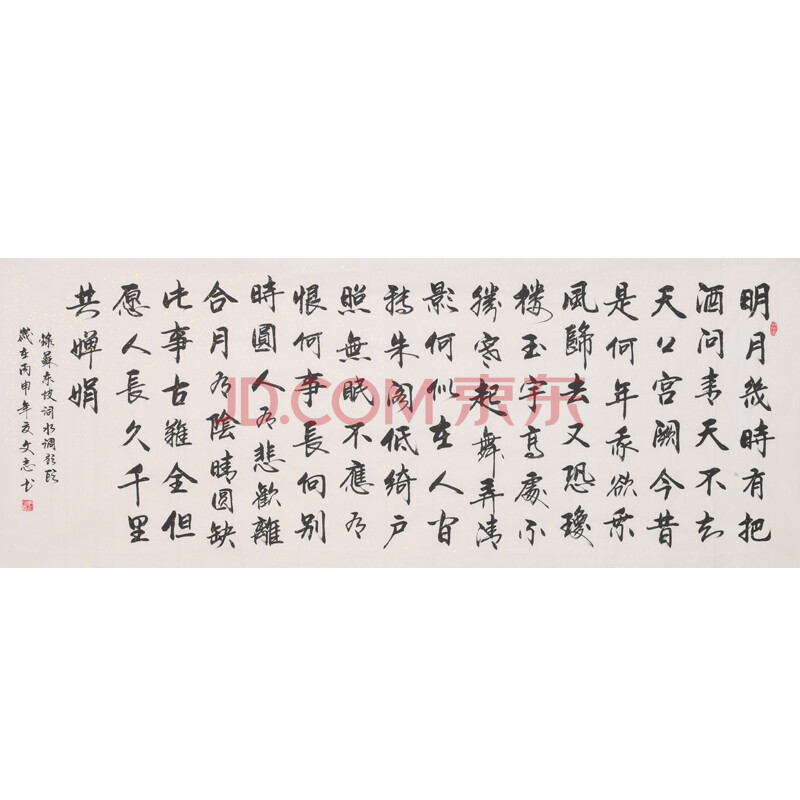 明月幾時有把
酒问青天不知
天上宫闕今昔
是何年我欲乘
風歸去又恐瓊
楼玉宇高處不
勝寒起舞弄清
影何似在人间
转朱阁低绮户
照無眠不應有
恨何事長向别
時圓人有悲歡離
合月有陰晴圆缺
此事古難全但
愿人長久千里
共婵娟
録蘇东坡词水调歌头
歲在丙申年夏文志书
JD.COM 京东